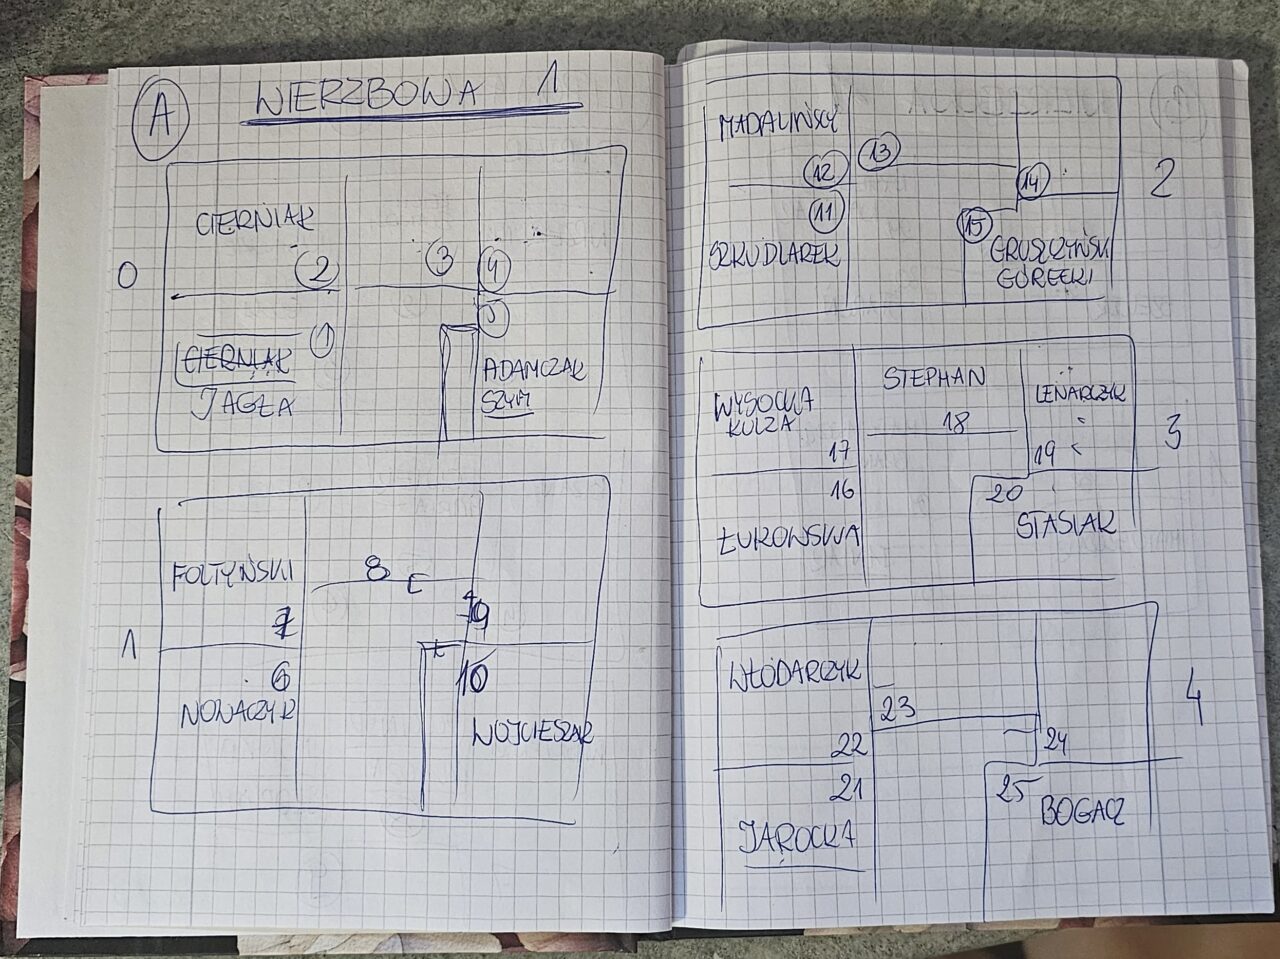 A
WIERZBOWA 1
0
CIERNIAK
2
3
4
1
5
CIERNIAK
JAGŁA
ADAMCZAK
SZYM
1
FOLTYŃSKI
8
7
9
6
10
NOWACZYK
WOJCIESZAK
2
MADALIŃSKI
12
13
14
11
15
SZKUDLAREK
GRUSZCZYŃSKI
GÓRECKI
3
WYSOCKA
KULZA
STEPHAN
LENARCZYK
17
18
19
16
20
ŻUROWSKA
STASIAK
4
WŁODARCZYK
23
22
24
21
25
JAROCKA
BOGACZ